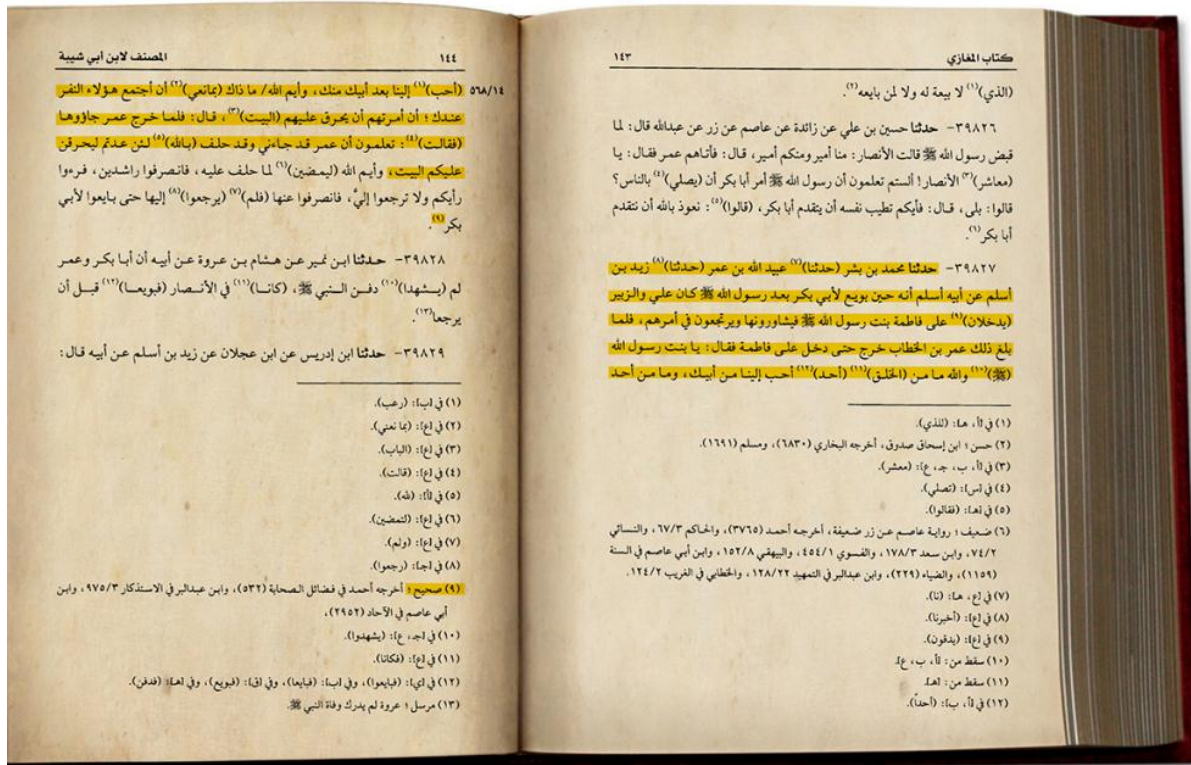 كتاب المغازي
١٤٣
(الذي)(١) لا بيعة له ولا لمن بايعه(٢).
٣٩٨٢٦- حدثنا حسين بن علي عن زائدة عن عاصم عن زر عن عبدالله قال: لما
قبض رسول الله ﷺ قالت الأنصار: منا أمير ومنكم أمير، قال: فأتاهم عمر فقال: يا
(معاشر)(٣) الأنصار! ألستم تعلمون أن رسول الله ﷺ أمر أبا بكر أن (يصلي)(٤) بالناس؟
قالوا: بلى، قال: فأيكم تطيب نفسه أن يتقدم أبا بكر، (قالوا)(٥): نعوذ بالله أن نتقدم
أبا بكر(٦).
٣٩٨٢٧- حدثنا محمد بن بشر (حدثنا)(٧) عبيد الله بن عمر (حدثنا)(٨) زيد بن
أسلم عن أبيه أسلم أنه حين بويع لأبي بكر بعد رسول الله ﷺ كان علي والزبير
(يدخلان)(٩) على فاطمة بنت رسول الله ﷺ فيشاورونها ويرتجعون في أمرهم، فلما
بلغ ذلك عمر بن الخطاب خرج حتى دخل على فاطمة فقال: يا بنت رسول الله
(ﷺ)(١٠) والله ما من (الخلق)(١١) (أحد)(١٢) أحب إلينا من أبيك، وما من أحد
(١) في [أ، هـ]: (للذي).
(٢) حسن؛ ابن إسحاق صدوق، أخرجه البخاري (٦٨٣٠)، ومسلم (١٦٩١).
(٣) في [أ، ب، جـ، ع]: (معشر).
(٤) في [س]: (تصلي).
(٥) في [هـ]: (فقالوا).
(٦) ضعيف؛ رواية عاصم عن زر ضعيفة، أخرجه أحمد (٣٧٦٥)، والحاكم ٦٧/٣، والنسائي
٧٤/٢، وابن سعد ١٧٨/٣، والفسوي ٤٥٤/١، والبيهقي ١٥٢/٨، وابن أبي عاصم في السنة
(١١٥٩)، والضياء (٢٢٩)، وابن عبدالبر في التمهيد ١٢٨/٢٢، والخطابي في الغريب ١٢٤/٢.
(٧) في [ع، هـ]: (نا).
(٨) في [ع]: (أخبرنا).
(٩) في [ع]: (يدقون).
(١٠) سقط من: [أ، ب، ع].
(١١) سقط من: [هـ].
(١٢) في [أ، ب]: (أحداً).
١٤٤
المصنف لابن أبي شيبة
٥٦٨/١٤
(أحب)(١) إلينا بعد أبيك منك، وأيم الله/ ما ذاك (بمانعي)(٢) أن أجتمع هؤلاء النفر
عندك؛ أن أمرتهم أن يحرق عليهم (البيت)(٣)، قال: فلما خرج عمر جاؤوها
(فقالت)(٤): تعلمون أن عمر قد جاءني وقد حلف (بالله)(٥) لئن عدتم ليحرقن
عليكم البيت، وأيم الله (ليمضين)(٦) لما حلف عليه، فانصرفوا راشدين، فرءوا
رأيكم ولا ترجعوا إليَّ، فانصرفوا عنها (فلم)(٧) (يرجعوا)(٨) إليها حتى بايعوا لأبي
بكر(٩).
٣٩٨٢٨- حدثنا ابن نمير عن هشام بن عروة عن أبيه أن أبا بكر وعمر
لم (يشهدا)(١٠) دفن النبي ﷺ، (كانا)(١١) في الأنصار (فبويعا)(١٢) قبل أن
يرجعا(١٣).
٣٩٨٢٩- حدثنا ابن إدريس عن ابن عجلان عن زيد بن أسلم عن أبيه قال:
(١) في [ب]: (رعب).
(٢) في [ع]: (بما نعني).
(٣) في [ع]: (الباب).
(٤) في [ع]: (قالت).
(٥) في [أ]: (لله).
(٦) في [ع]: (لتمضين).
(٧) في [ع]: (ولم).
(٨) في [جـ]: (رجعوا).
(٩) صحيح؛ أخرجه أحمد في فضائل الصحابة (٥٣٢)، وابن عبدالبر في الاستذكار ٩٧٥/٣، وابن
أبي عاصم في الآحاد (٢٩٥٢)،
(١٠) في [جـ، ع]: (يشهدوا).
(١١) في [ع]: (فكانا).
(١٢) في [ي]: (فبايعوا)، وفي [ب]: (فبايعا)، وفي [ق]: (فبويع)، وفي [هـ]: (فدفن).
(١٣) مرسل؛ عروة لم يدرك وفاة النبي ﷺ.